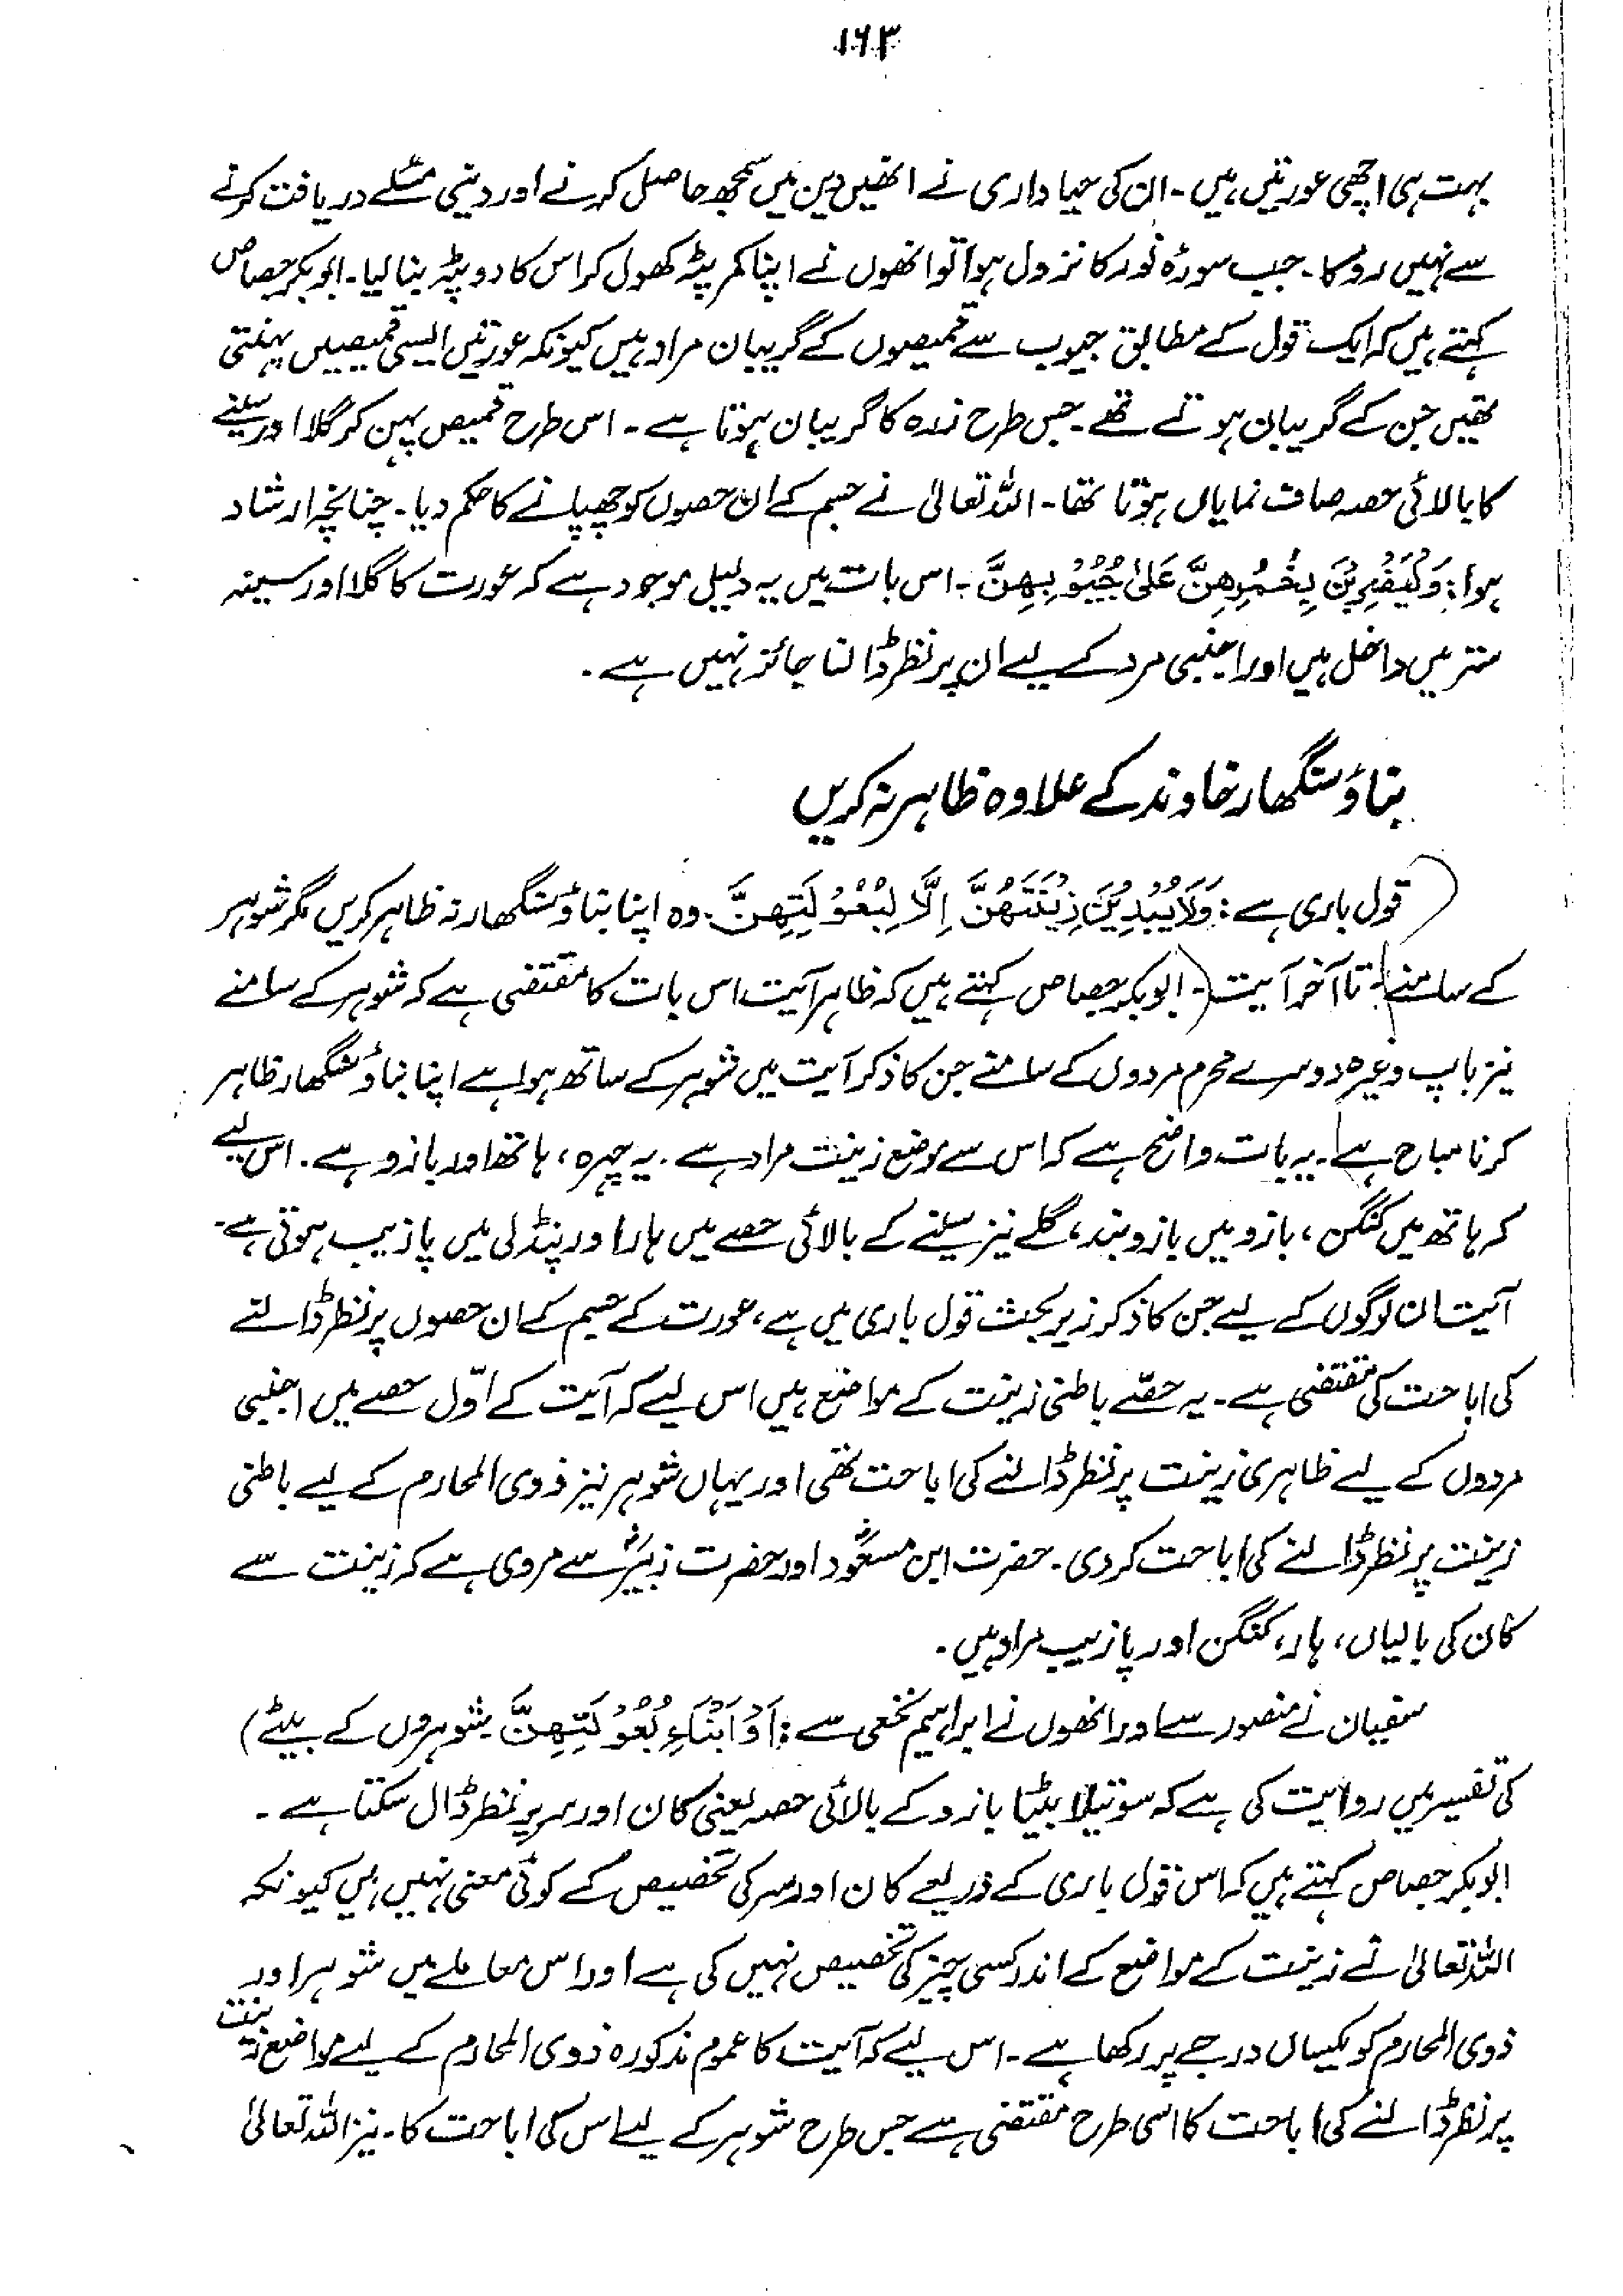 ۱۶۳
بہت ہی اچھی عورتیں ہیں۔ ان کی حیاداری نے انھیں دین میں سمجھ حاصل کرنے اور دینی مسئلے دریافت کرنے
سے نہیں روکا۔ جب سورۂ نور کا نزول ہوا تو انھوں نے اپنا کمر پٹہ کھول کر اس کا دوپٹہ بنا لیا۔ ابو بکر جصاص
کہتے ہیں کہ ایک قول کے مطابق جیوب سے قمیصوں کے گریبان مراد ہیں کیونکہ عورتیں ایسی قمیصیں پہنتی
تھیں جن کے گریبان ہوتے تھے۔ جس طرح زرہ کا گریبان ہوتا ہے۔ اس طرح قمیص پہن کر گلا اور سینے
کا بالائی حصہ صاف نمایاں ہوتا تھا۔ اللہ تعالیٰ نے جسم کے ان حصوں کو چھپانے کا حکم دیا۔ چنانچہ ارشاد
ہوا: وَلْيَضْرِبْنَ بِخُمُرِهِنَّ عَلىٰ جُيُوْبِهِنَّ۔ اس بات میں یہ دلیل موجود ہے کہ عورت کا گلا اور سینہ
ستر میں داخل ہیں اور اجنبی مرد کے لیے ان پر نظر ڈالنا جائز نہیں ہے۔
بناؤ سنگھار خاوند کے علاوہ ظاہر نہ کریں
قول باری ہے: وَلَا يُبْدِيْنَ زِيْنَتَهُنَّ اِلَّا لِبُعُوْلَتِهِنَّ۔ وہ اپنا بناؤ سنگھار نہ ظاہر کریں مگر شوہر
کے سامنے) تا آخر آیت۔ ابو بکر جصاص کہتے ہیں کہ ظاہر آیت اس بات کا مقتضی ہے کہ شوہر کے سامنے
نیز باپ وغیرہ دوسرے محرم مردوں کے سامنے جن کا ذکر آیت میں شوہر کے ساتھ ہوا ہے اپنا بناؤ سنگھار ظاہر
کرنا مباح ہے۔ یہ بات واضح ہے کہ اس سے موضع زینت مراد ہے۔ یہ چہرہ، ہاتھ اور بازو ہے۔ اس لیے
کہ ہاتھ میں کنگن، بازو میں بازوبند، گلے نیز سینے کے بالائی حصے میں ہار اور پنڈلی میں پازیب ہوتی ہے۔
آیت ان لوگوں کے لیے جن کا ذکر زیر بحث قول باری میں ہے، عورت کے جسم کے ان حصوں پر نظر ڈالنے
کی اباحت کی مقتضی ہے۔ یہ حصّے باطنی زینت کے مواضع ہیں اس لیے کہ آیت کے اوّل حصے میں اجنبی
مردوں کے لیے ظاہری زینت پر نظر ڈالنے کی اباحت تھی اور یہاں شوہر نیز ذوی المحارم کے لیے باطنی
زینت پر نظر ڈالنے کی اباحت کر دی۔ حضرت ابن مسعودؓ اور حضرت زبیرؓ سے مروی ہے کہ زینت سے
کان کی بالیاں، ہار، کنگن اور پازیب مراد ہیں۔
سفیان نے منصور سے اور انھوں نے ابراہیم نخعی سے: اَوْ اَبْنَاءِ بُعُوْلَتِهِنَّ۔ شوہروں کے بیٹے)
کی تفسیر میں روایت کی ہے کہ سوتیلا بیٹا بازو کے بالائی حصہ یعنی کان اور سر پر نظر ڈال سکتا ہے۔
ابو بکر جصاص کہتے ہیں کہ اس قول باری کے ذریعے کان اور سر کی تخصیص کے کوئی معنی نہیں ہیں کیونکہ
اللہ تعالیٰ نے زینت کے مواضع کے اندر کسی چیز کی تخصیص نہیں کی ہے اور اس معاملے میں شوہر اور
ذوی المحارم کو یکساں درجے پر رکھا ہے۔ اس لیے کہ آیت کا عموم مذکورہ ذوی المحارم کے لیے مواضع زینت
پر نظر ڈالنے کی اباحت کا اسی طرح مقتضی ہے جس طرح شوہر کے لیے اس کی اباحت کا۔ نیز اللہ تعالیٰ